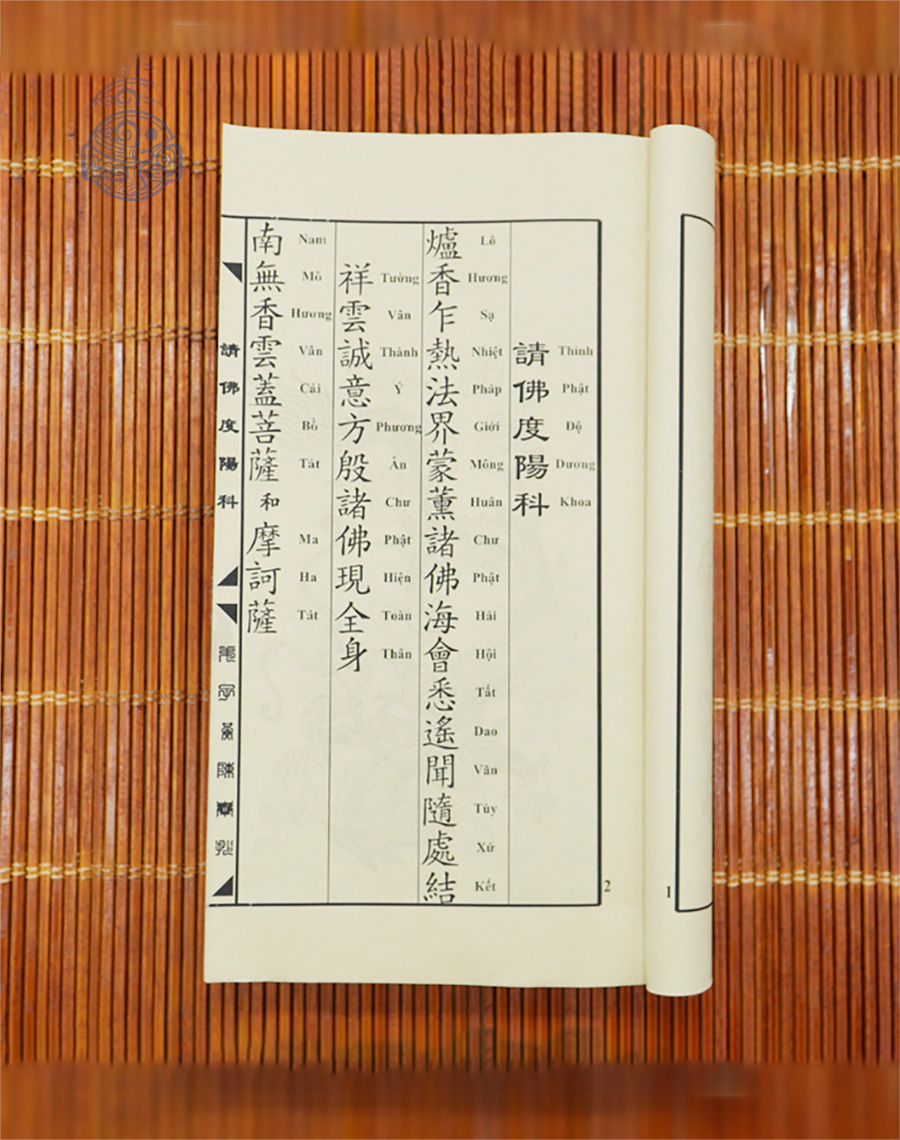 請佛度陽科
Thỉnh Phật Độ Dương Khoa
爐香乍熱法界蒙薰諸佛海會悉遙聞隨處結
Lô Hương Sạ Nhiệt Pháp Giới Mông Huân Chư Phật Hải Hội Tất Dao Văn Tùy Xứ Kết
祥雲誠意方殷諸佛現全身
Tường Vân Thành Ý Phương Ân Chư Phật Hiện Toàn Thân
南無香雲蓋菩薩和摩訶薩
Nam Mô Hương Vân Cái Bồ Tát Ma Ha Tát
請佛度陽科
2
1